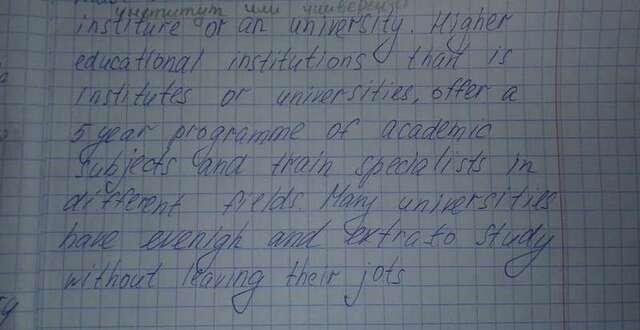 институт или универси
institure or an university. Higher
educational institutions that is
institutes or universities, offer a
5 year programme of academic
subjects and train specialists in
different fields. Many universities
have evenigh and extrato study
without leaving their jots